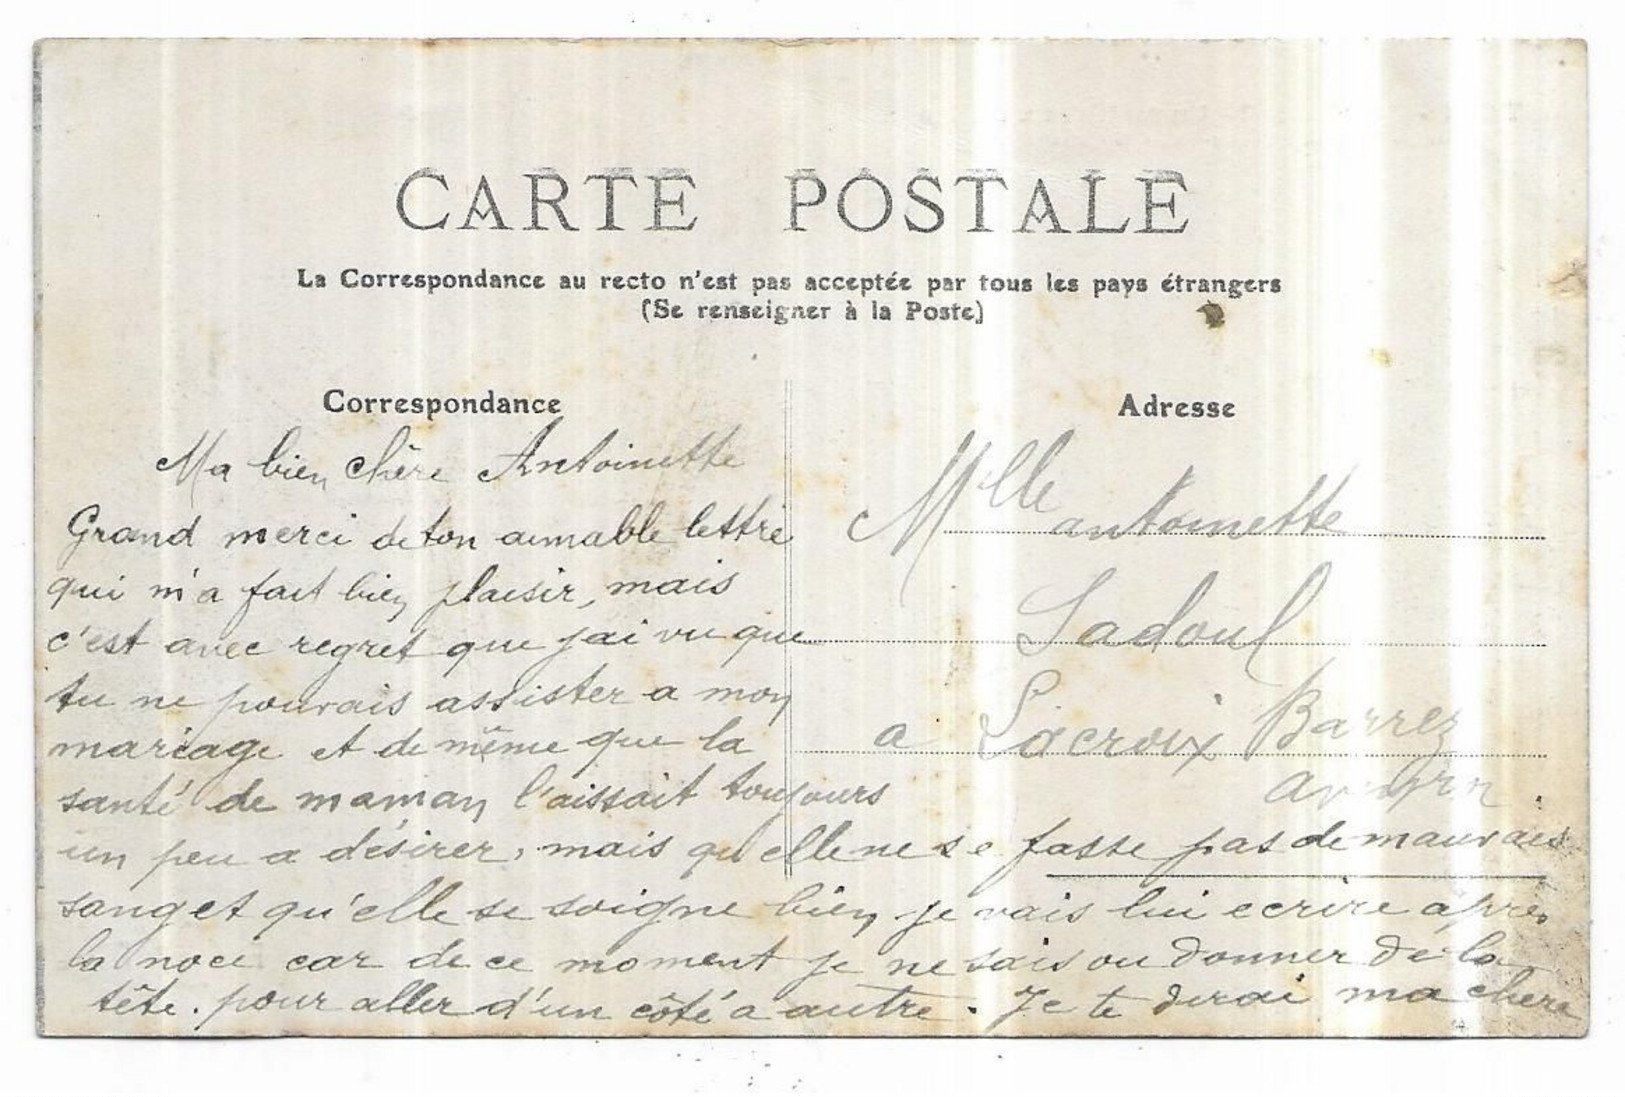 CARTE POSTALE
La Correspondance au recto n'est pas acceptée par tous les pays étrangers
(Se renseigner à la Poste)
Correspondance
Ma bien chère Antoinette
Grand merci de ton aimable lettre
qui m'a fait bien plaisir, mais
c'est avec regret que j'ai vu que
tu ne pouvais assister a mon
mariage et de même que la
santé de maman l'aissait toujours
un peu a désirer, mais qu'elle ne se fasse pas de mauvais
sang et qu'elle se soigne bien je vais lui ecrire après
la noce car de ce moment je ne sais ou donner de la
tête. pour aller d'un côté a autre. Je te dirai ma chere
Adresse
Mlle antoinette
Sadoul
a Lacroix Barrez